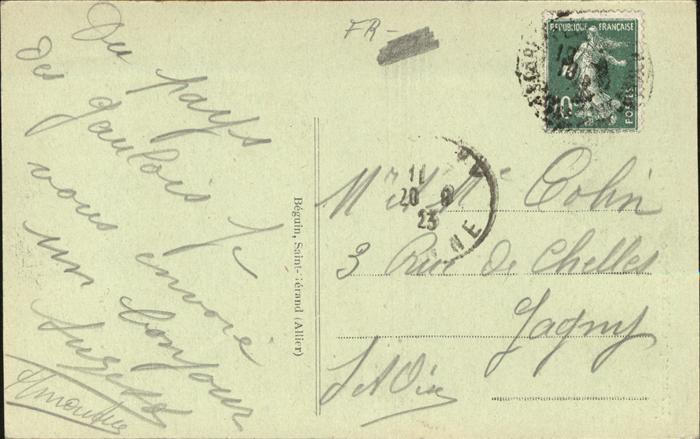 FR-
Du pays
des gaulois je
vous envoie
un bonjour
RÉPUBLIQUE FRANÇAISE
10
POSTES
11
20 8
23
NE
Béguin, Saint-Gérand (Allier)
Mr et Me Colin
3 Rue de Chelles
Gagny
S et Oise